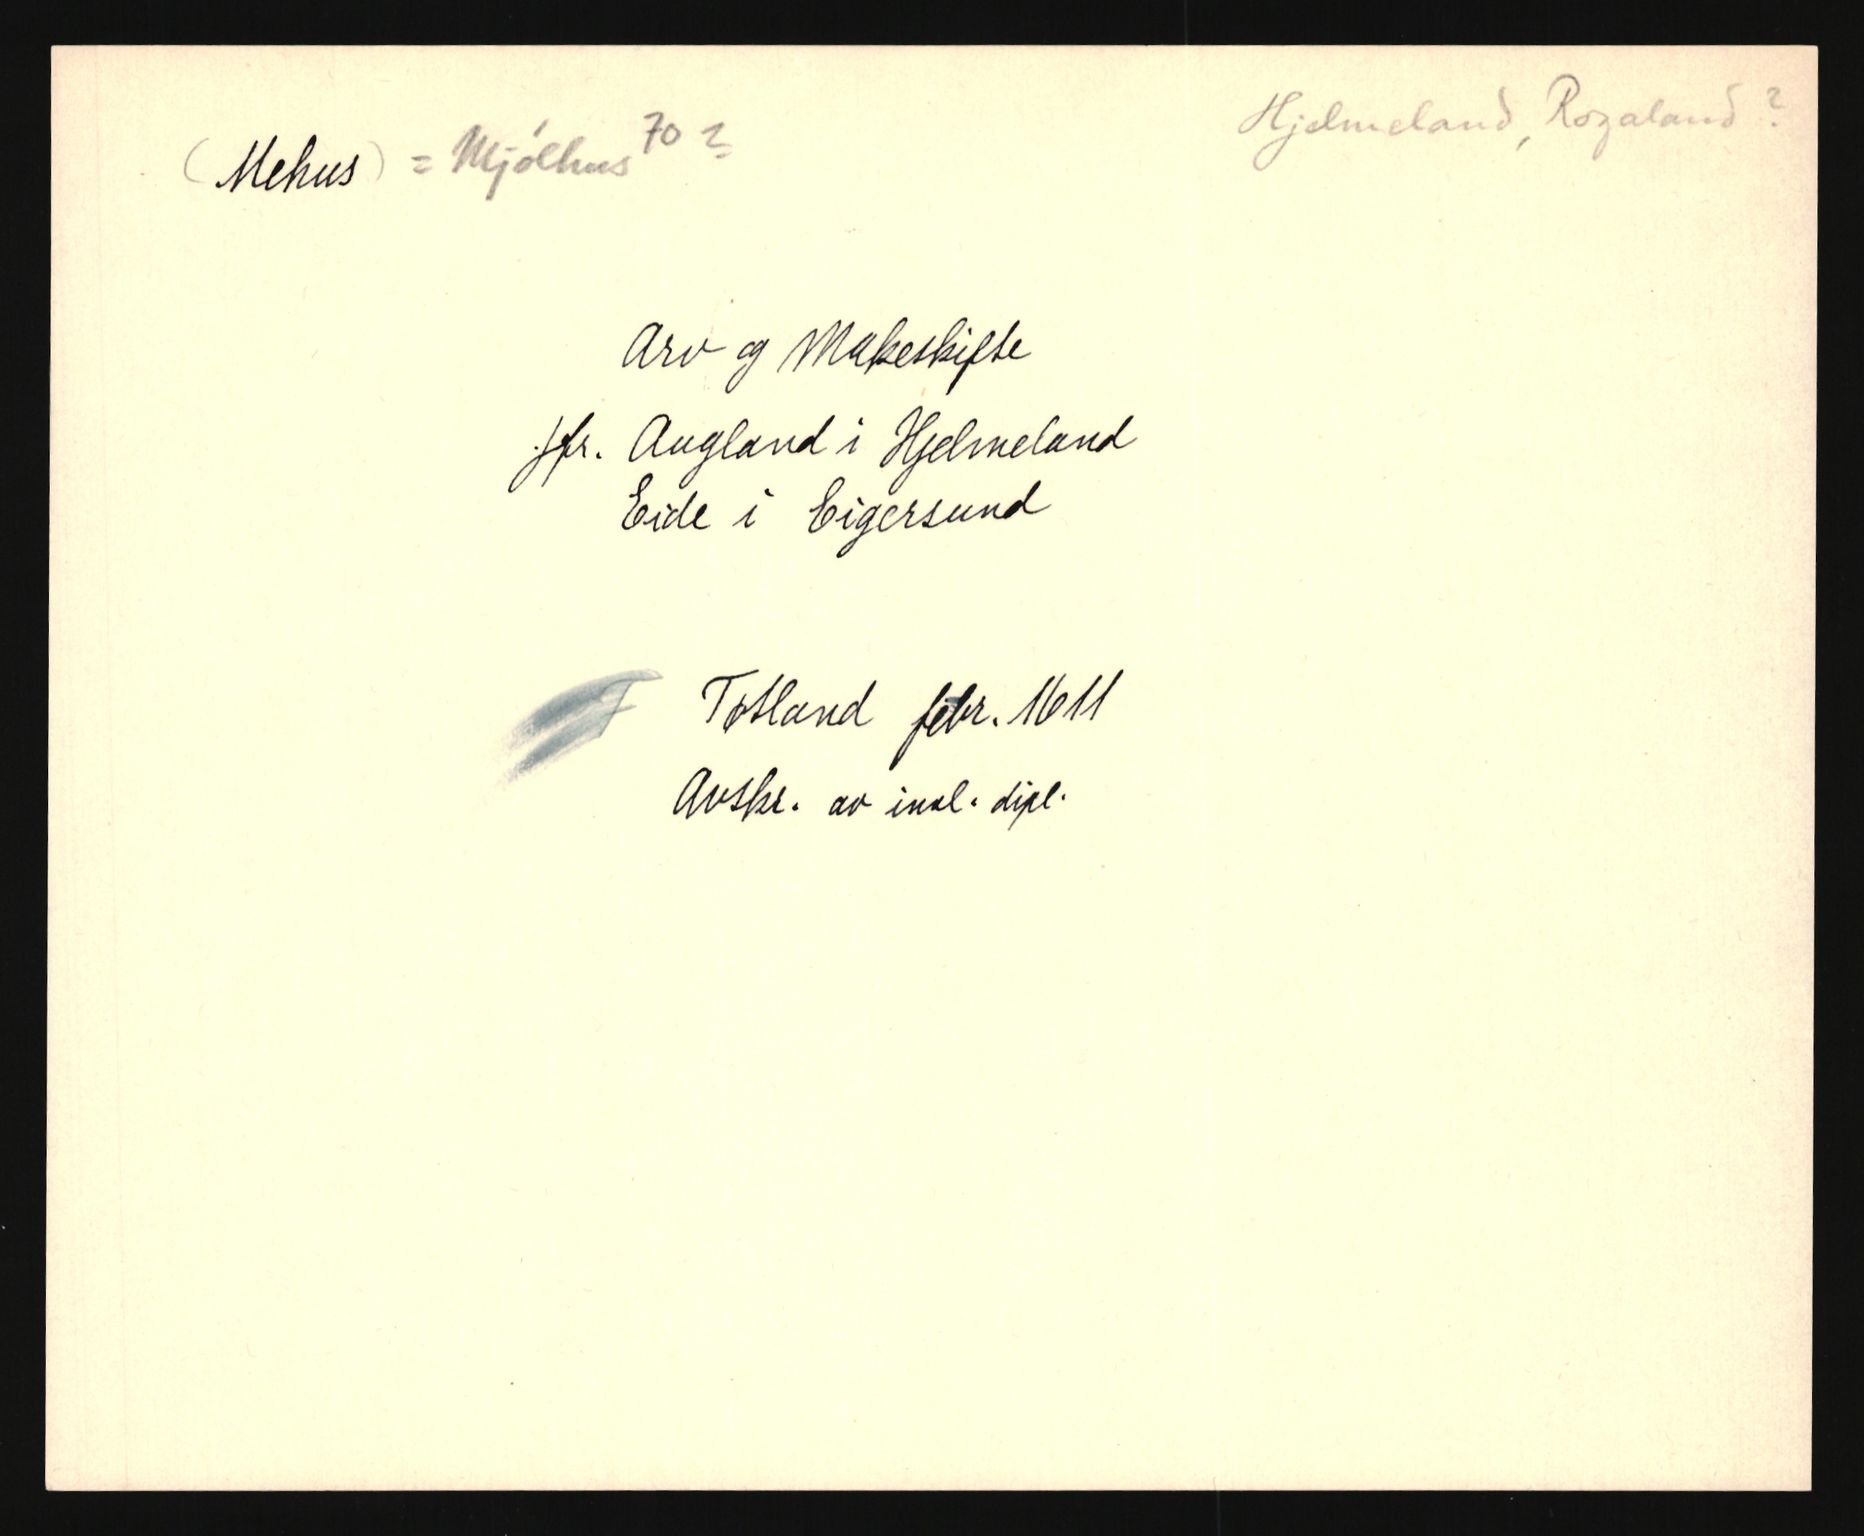 (Mehus) = Mjólhus 70 ?
Hjelmeland, Rogaland ?
Arv og Makeskifte
jfr. Augland i Hjelmeland
Eide i Eigersund
Totland febr. 1611
Avskr. av innl. dipl.